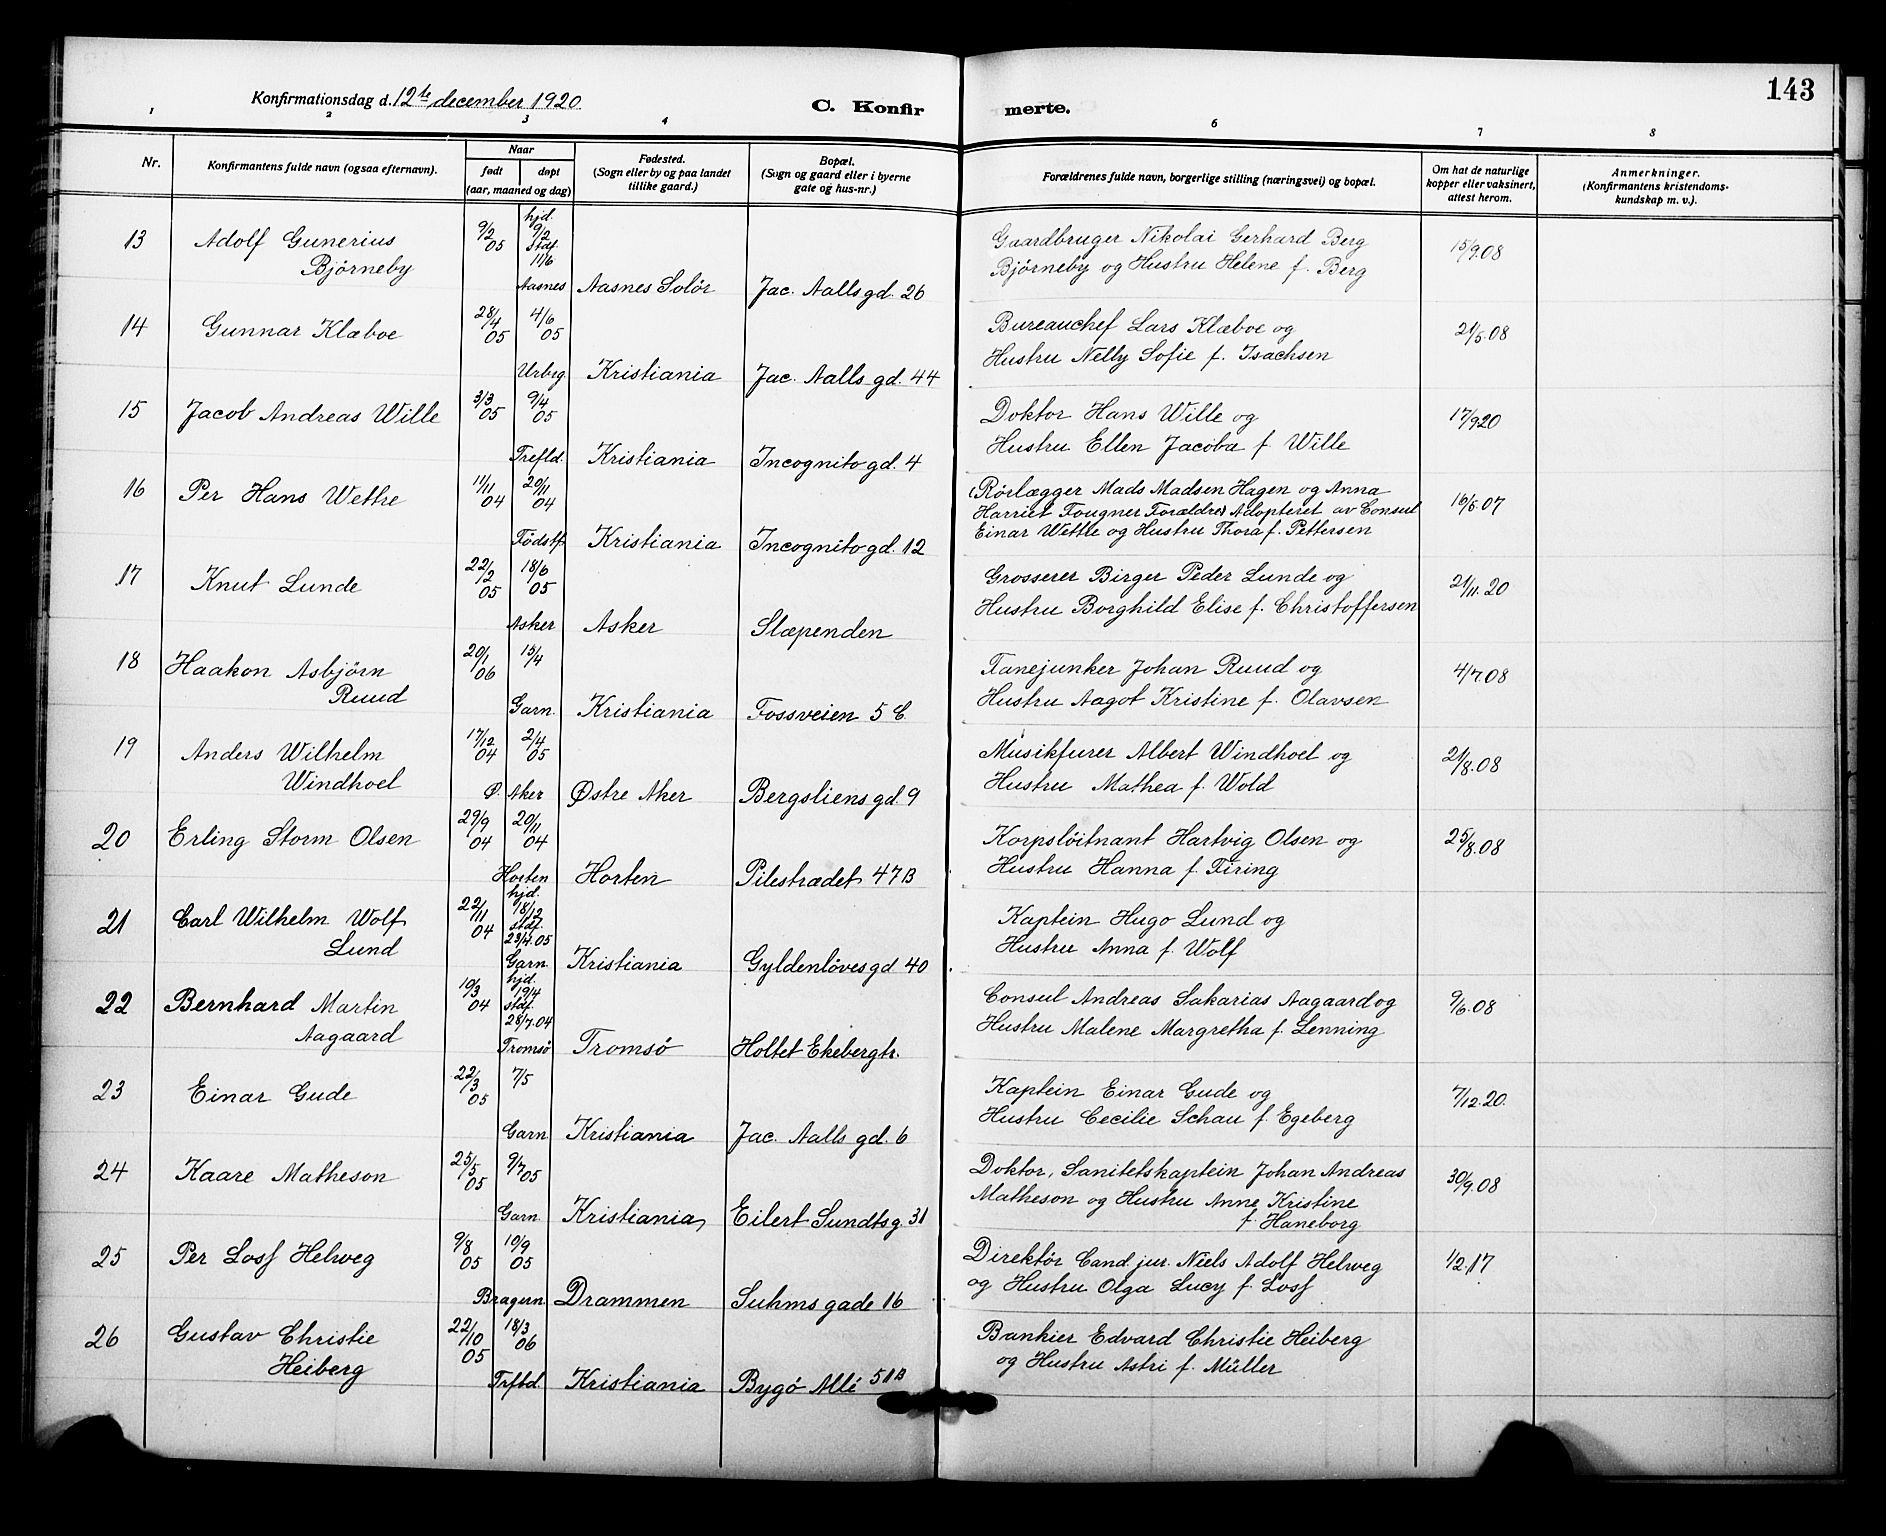 143
Konfirmationsdag d. 12te december 1920
C. Konfirmerte.
1 2 3 4 6 7 8
Nr.
Konfirmantens fulde navn (ogsaa efternavn).
Naar
født døpt
(aar, maaned og dag)
Fødested.
(Sogn eller by og paa landet
tillike gaard.)
Bopæl.
(Sogn og gaard eller i byerne
gate og hus-nr.)
Forældrenes fulde navn, borgerlige stilling (næringsvei) og bopæl.
Om hat de naturlige
kopper eller vaksinert,
attest herom.
Anmerkninger.
(Konfirmantens kristendoms-
kundskap m. v.).
13 Adolf Gunerius
Bjørneby
9/2 05
hjd. 9/2
Stdf. 11/6
Aasnes
Aasnes Solør
Jac. Aalls gd. 26
Gaardbruger Nikolai Gerhard Berg
Bjørneby og Hustru Helene f. Berg
15/9.08
14 Gunnar Klæboe
28/4 05
4/6 05
Urbrg
Kristiania
Jac. Aalls gd. 44
Bureauchef Lars Klæboe og
Hustru Nelly Sofie f. Isachsen
21/5.08
15 Jacob Andreas Wille
3/3 05
9/4 05
Trefld.
Kristiania
Incognito gd. 4
Doktor Hans Wille og
Hustru Ellen Jacoba f. Wille
17/920
16 Per Hans Wettre
11/11 04
20/11 04
Födstf.
Kristiania
Incognito gd. 12
(Rörlægger Mads Madsen Hagen og Anna
Harriet Fougner Forældre) Adopteret av Consul
Einar Wettre og Hustru Thora f. Pettersen
16/5.07
17 Knut Lunde
22/2 05
18/6 05
Asker
Asker
Slæpenden
Grosserer Birger Peder Lunde og
Hustru Borghild Elise f. Christoffersen
21/11.20
18 Haakon Asbjørn
Ruud
20/1 06
15/4
Garn.
Kristiania
Fossveien 5 C.
Fanejunker Johan Ruud og
Hustru Aagot Kristine f. Olavsen
4/7.08
19 Anders Wilhelm
Windhoel
17/12 04
2/4 05
Ø. Aker
Østre Aker
Bergsliens gd. 9
Musikfurer Albert Windhoel og
Hustru Mathea f. Wold
21/8.08
20 Erling Storm Olsen
29/9 04
20/11 04
Horten
Horten
Pilestrædet 47B
Korpslöitnant Hartvig Olsen og
Hustru Hanna f. Firing
25/8.08
21 Carl Wilhelm Wolf
Lund
22/11 04
hjd. 18/12
stdf.
23/4.05
Garn.
Kristiania
Gyldenlöves gd 40
Kaptein Hugo Lund og
Hustru Anna f. Wolf
22 Bernhard Martin
Aagaard
10/3 04
hjd. 19/4
stdf.
28/7.04
Tromsø
Tromsø
Holtet Ekebergtr.
Consul Andreas Sakarias Aagaard og
Hustru Malene Margretha f. Lenning
9/6.08
23 Einar Gude
22/3 05
7/5
Garn
Kristiania
Jac. Aalls gd. 6
Kaptein Einar Gude og
Hustru Cecilie Schau f. Egeberg
7/12.20.
24 Kaare Matheson
25/5 05
9/7 05
Garn.
Kristiania,
Eilert Sundts g. 31
Doktor, Sanitetskaptein Johan Andreas
Matheson og Hustru Anne Kristine
f. Haneborg
30/9.08
25 Per Losf Helweg
9/8 05
10/9 05
Bragern
Drammen
Suhms gade 16
Direktör Cand. jur. Niels Adolf Helweg
og Hustru Olga Lucy f. Losf
1/2.17
26 Gustav Christie
Heiberg
22/10 05
18/3 06
Trfld.
Kristiania
Bygö Allé 51B
Bankier Edvard Christie Heiberg
og Hustru Astri f. Müller